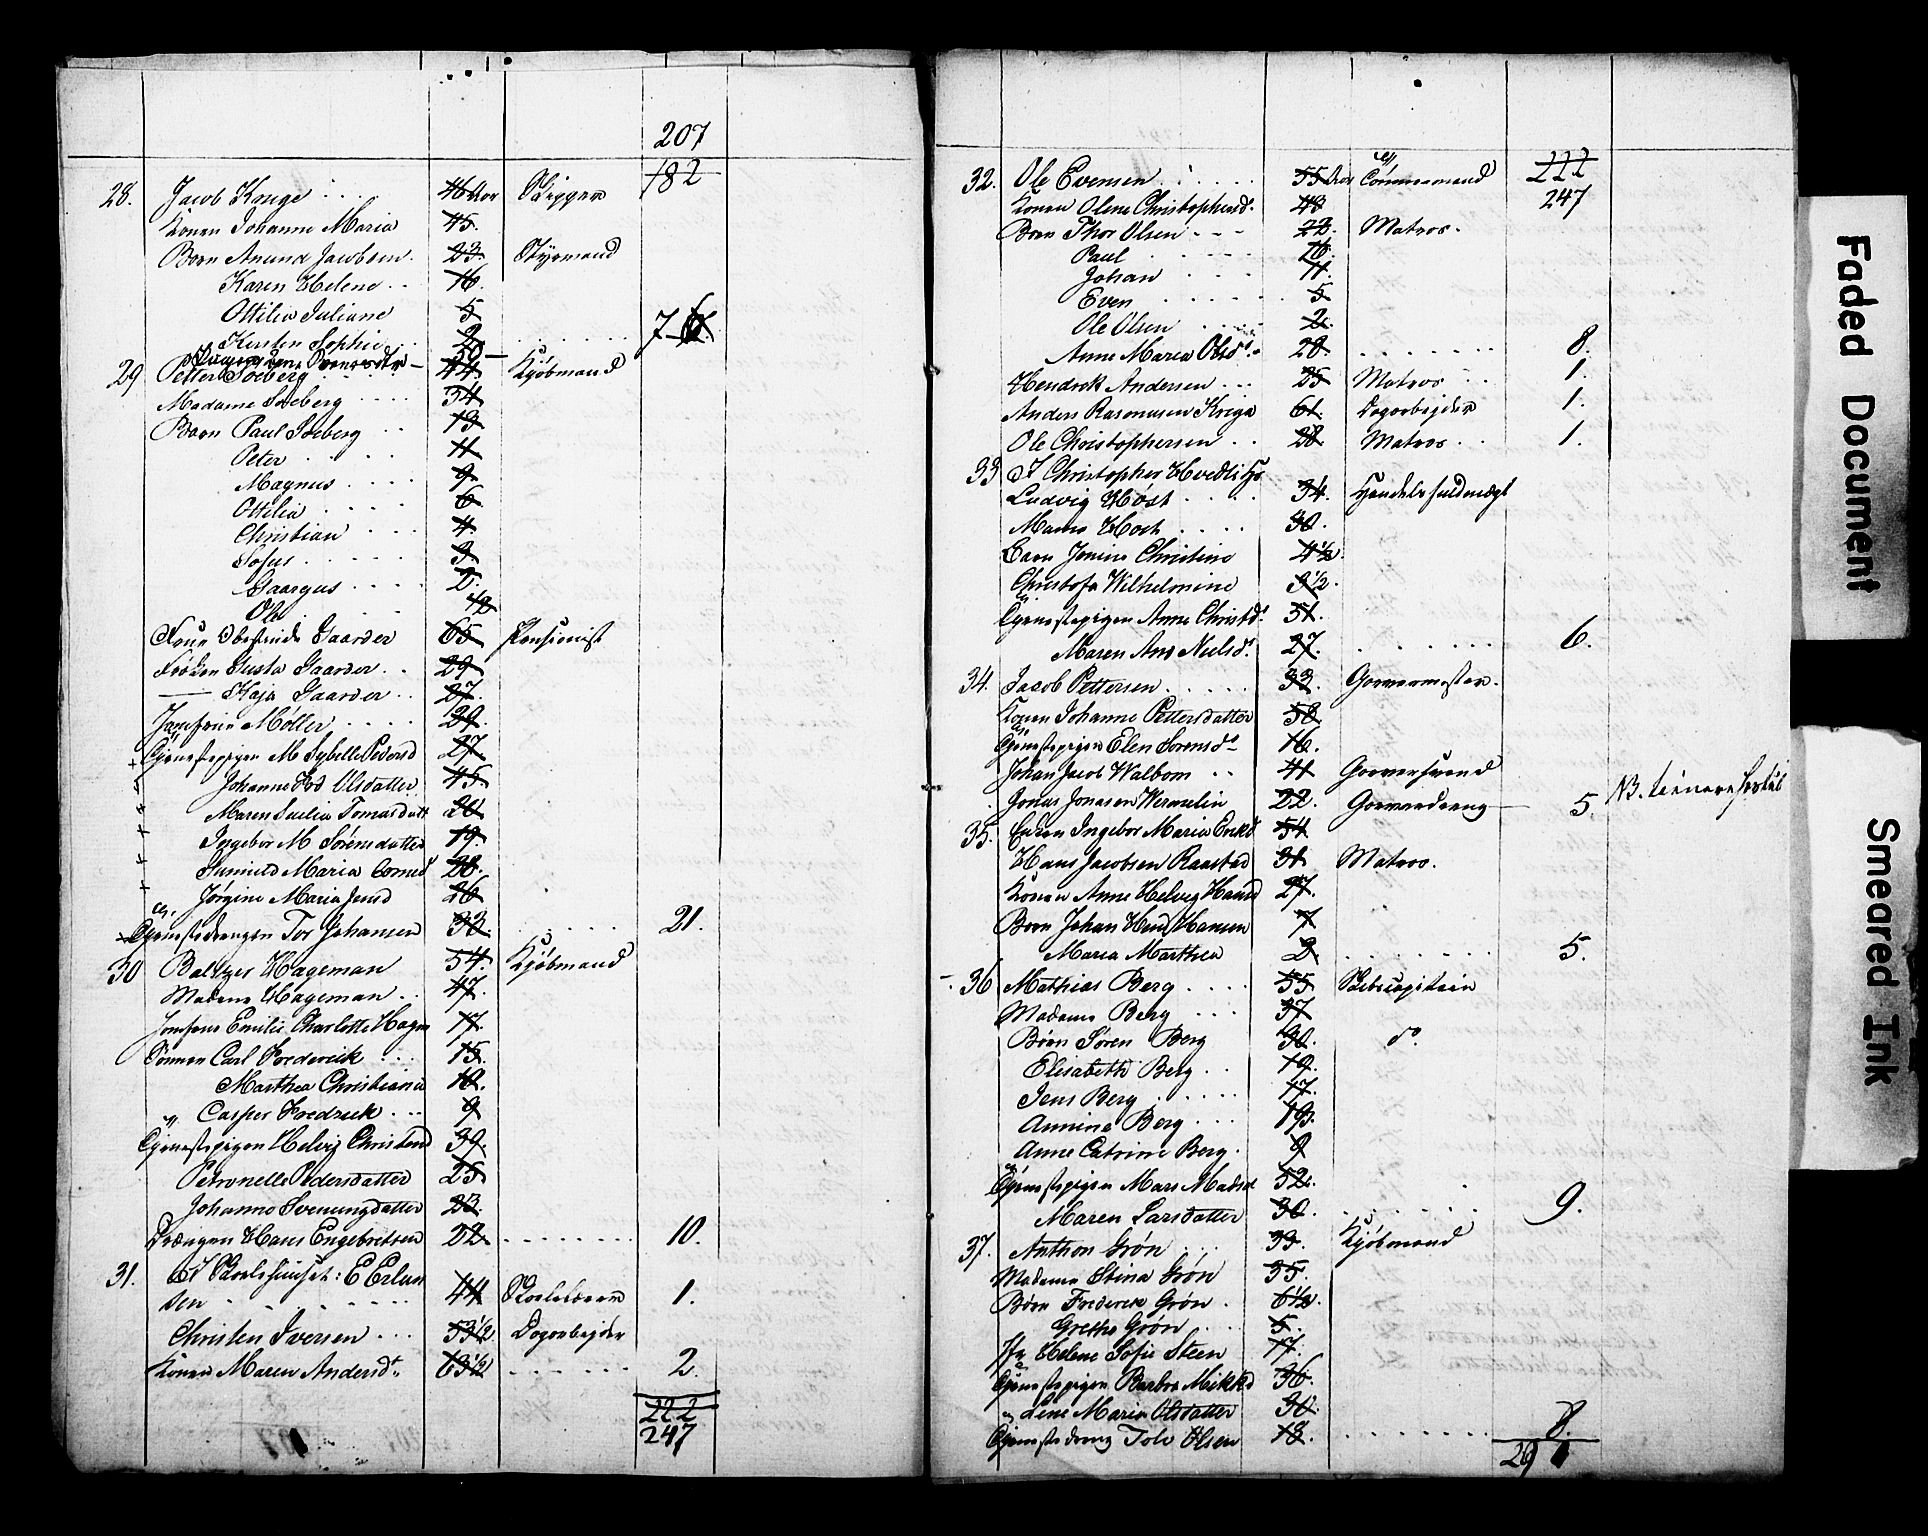 207
182
28. Jacob Kruge 46 Aar Skipper
Konen Johanne Maria 45.
Børn Anund Jacobsen 23. Styrmand
Karen Helene 16.
Ottilia Juliane 5
Kirsten Sophie 2 7
50
29 Petter Soeberg 44 Kjøbmand
Madame Soeberg 34
Børn Paul Soeberg 13
Peter 11
Magnus 9
Ottilia 6
Christian 4
Sofus 3
Gaargus 2
Ole 1/2
Frue Gaarder 65 Pensionist
Frøken Gusta Gaarder 29
— Kaja Gaarder 27.
Jomfrue Møller 29.
Tjenestepigen M Sybelle Pedersd 27
Johanne Olsdatter 45.
Maren Tomasdatt 20
Ingebor M Sørensdatter 19.
Gunnild Maria 28.
Jørgine Maria Jensd 26
Tjenestedrengen Tor Johansen 32. 21.
30 Baltzer Hageman 54. Kjøbmand
Madame Hageman 47.
Jomfrue Emilie Charlotte Hagm 17.
Sønnen Carl Frederick 15.
Marthea Christiania 10.
Casper Fredrick 9
Tjenestepigen Helvig Christend 39.
Petronelle Pedersdatter 25
Johanne Svenungdatter 23.
Drængen Hans Engebretsen 22 10.
31. I Skolehuuset: E Erlan
sen 44 Skolelærer 1.
Christen Iversen 53 1/2 Dagarbejder
Konen Maren Andersd 63 1/2 2.
222
247
222
32. Ole Evensen 55 Aar Tømmermand 247
Konen Olene Christophersd. 48
Børn Thor Olsen 22. Matros.
Paul 16.
Johan 11.
Even 5
Ole Olsen 2.
Anne Maria Olsd 28. 8.
Hendrek Andersen 25 Matros 1.
Anders Rasmusen Kriga 61. Dagarbejder 1.
Ole Christophersen 28. Matros 1.
33 I Christopher
Ludvig Høst 34. Handelsfuldmægt
Høst 30.
Barn Jensine Christine 4 1/2.
Christofa Wilhelmine 3 1/2.
Tjenestepigen Anne Christd. 51.
Maren Ane Nielsd. 27. 6.
34. Jacob Pettersen 33. Garvermester.
Konen Johanne Pettersdatter 58.
Tjenestepigen Elen Sorensd 16.
Johan Jacob Walbom 41 Garversvend
Jonas Jonasen Wermelin 22. Garverdreng 5. NB.
35. Enken Ingebor Maria Eriksd 54
Hans Jacobsen Raastad 31 Matros.
Konen Anne Helvig Hansd 27.
Børn Johan Hend Hansen 7
Maria Marthea 2. 5.
36 Mathias Berg 55 Skibscapitain
Madame Berg 37
Børn Søren Berg 30. do.
Elisabeth Berg 19.
Jens Berg 17.
Annine Berg 13.
Anne Catrine Berg. 9
Tjenestepigen Mari Madsd 52.
Maren Larsdatter 30. 9.
37. Anthon Grøn 33. Kjøbmand
Madame Stina Grøn 35.
Børn Frederik Grøn 6 1/2.
Grethe Grøn 5.
Jfr Helene Sofie Steen 17.
Tjenestepigen Barbra Mikkd 36.
Lene Maria Olsdatter 30.
Tjenestedreng Tolv Olsen 18. 8.
29
Faded Document
Smeared Ink